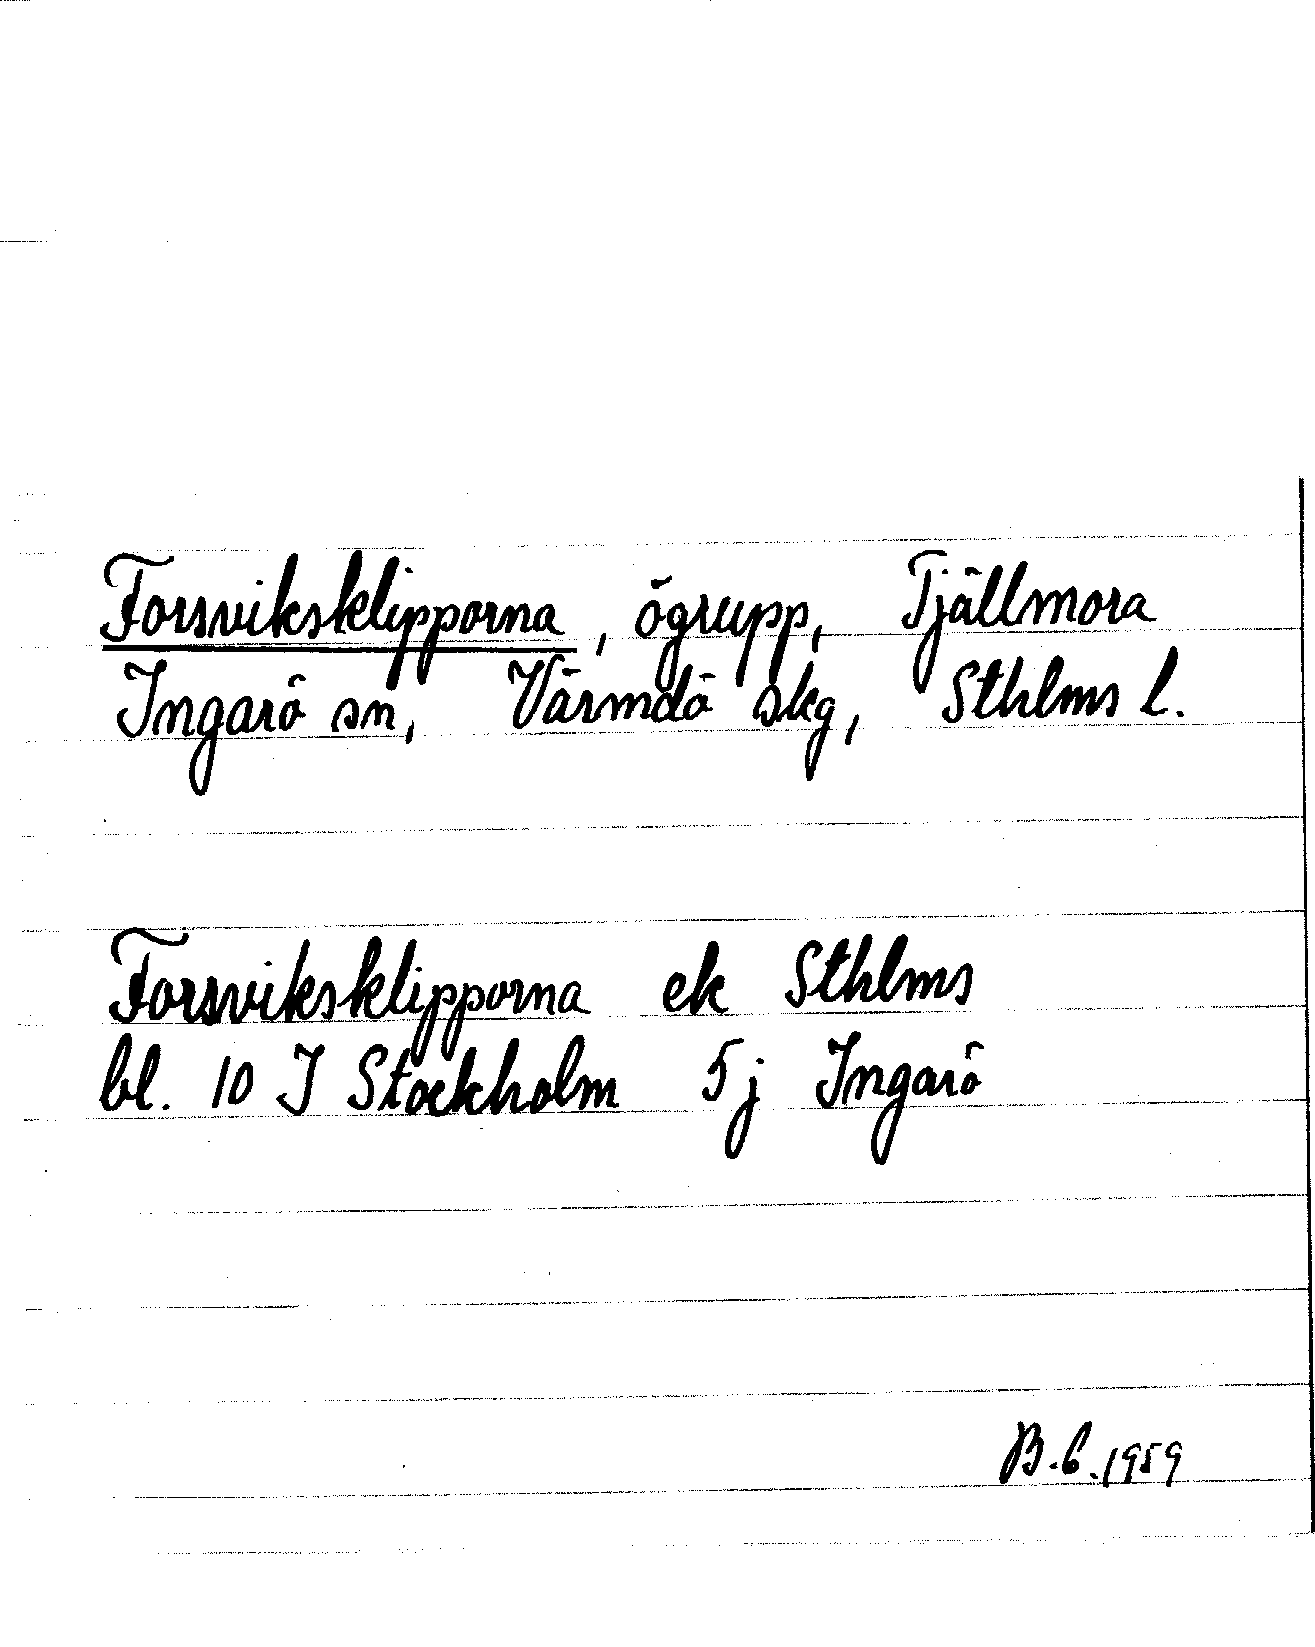 Forsviksklipporna, ögrupp, Tjällmora
Ingarö sn, Värmdö skg, Sthlms l.
Forsviksklipporna ek Sthlms
bl. 10 I Stockholm 5j Ingarö
B.C.1959